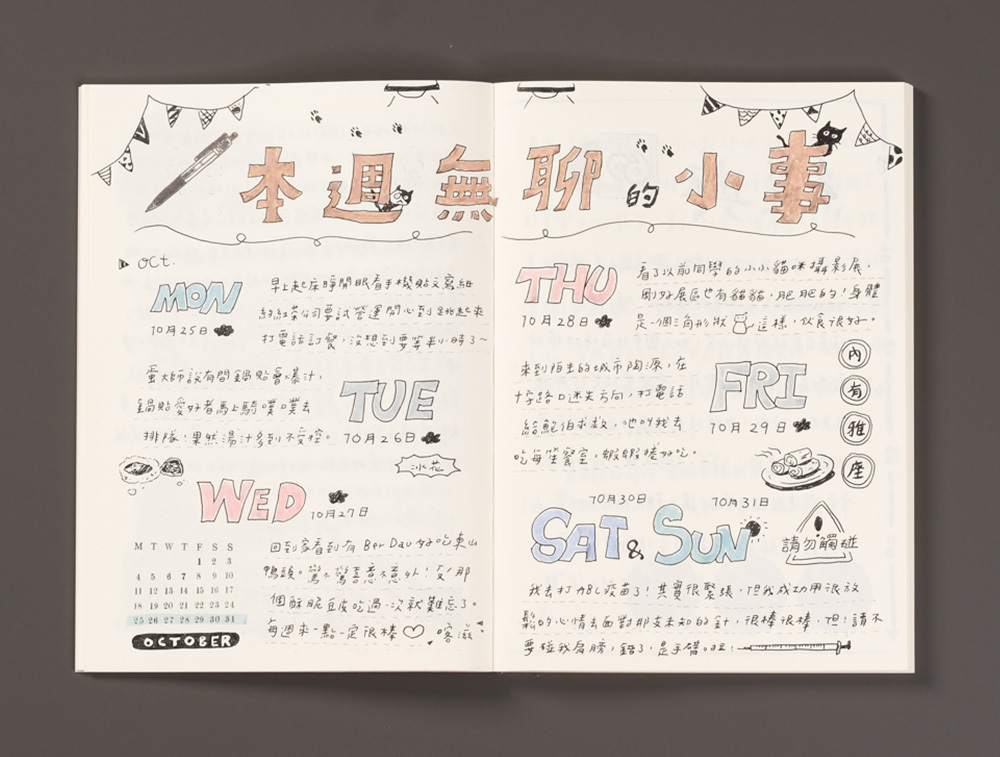 本週無聊的小事
OCT.
MON
10月25日
早上起床睜開眼看手機貼文寫紐
約紅茶公司要試營運開心到跳起來
打電話訂餐，沒想到要等半小時了~
蛋大師說有間鍋貼會爆汁，
鍋貼愛好者馬上騎噗噗去
排隊！果然湯汁多到不受控。
TUE
10月26日
冰花
WED
10月27日
回到家看到有 Ber Dau 好吃東山
鴨頭。驚不驚喜意不意外！那
個酥脆豆皮吃過一次就難忘了。
每週來一點一定很棒♡ 喀滋
M T W T F S S
1 2 3
4 5 6 7 8 9 10
11 12 13 14 15 16 17
18 19 20 21 22 23 24
25 26 27 28 29 30 31
OCTOBER
THU
10月28日
看了以前同學的小小貓咪攝影展，
剛好展區也有貓貓，肥肥的！身體
是一個三角形狀 這樣，伙食很好。
來到陌生的城市陶源，在
十字路口迷失方向，打電話
給鮑伯求救，他叫我去
吃每笙餐室，蝦蝦捲好吃。
FRI
10月29日
內有雅座
10月30日
10月31日
SAT & SUN
請勿觸碰
我去打加乙疫苗了！其實很緊張，但我成功用很放
鬆的心情去面對那支未知的針，很棒很棒，但！請不
要碰我肩膀，錯了，是手臂。